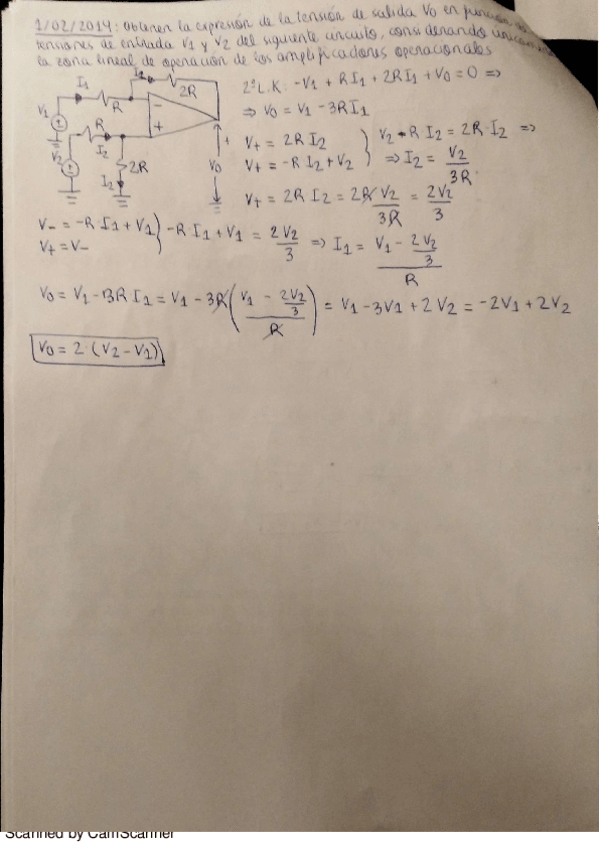 1/02/2014: Obtener la expresión de la tensión de salida V0 en función
tensiones de entrada V1 y V2 del siguiente circuito, considerando
la zona lineal de operación de los amplificadores operacionales
I1
I1
2R
R
V1
R
I2
V2
2R
I2
-
+
+
V0
-
2ª L.K. -V1 + RI1 + 2RI1 + V0 = 0 ⇒
⇒ V0 = V1 - 3RI1
V+ = 2RI2
V+ = -RI2 + V2
} V2 - RI2 = 2R·I2 ⇒
⇒ I2 = V2/3R
V+ = 2RI2 = 2R V2/3R = 2V2/3
V- = -R·I1 + V1
V+ = V-
} -R·I1 + V1 = 2V2/3 ⇒ I1 = (V1 - 2V2/3)/R
V0 = V1 - 3RI1 = V1 - 3R((V1 - 2V2/3)/R) = V1 - 3V1 + 2V2 = -2V1 + 2V2
V0 = 2·(V2 - V1)
Scanned by CamScanner